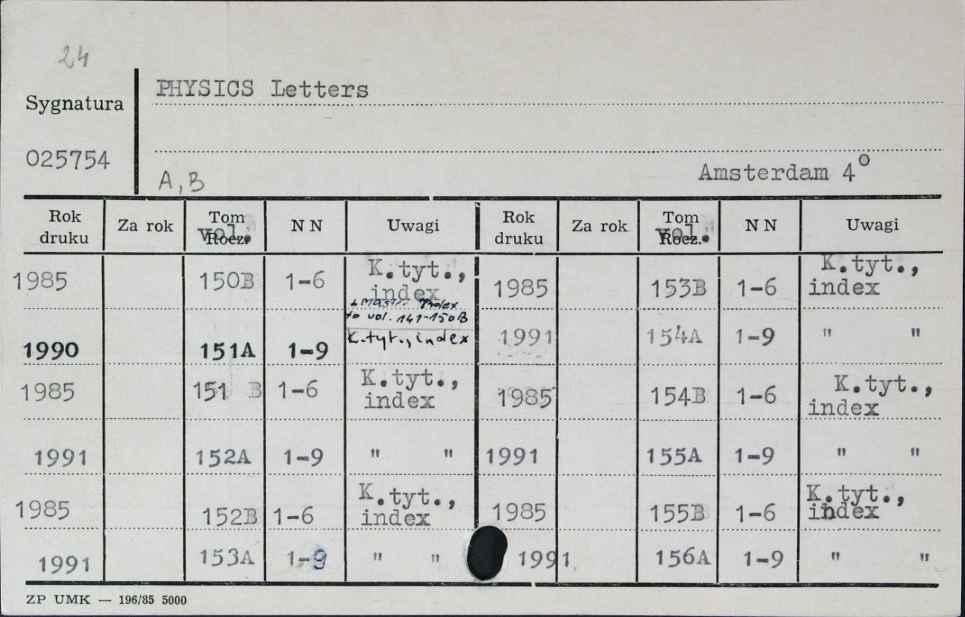 24
Sygnatura PHYSICS Letters
025754
Amsterdam 4º
A, B
Rok druku Za rok Tom Rocz. vol. N N Uwagi Rok druku Za rok Tom Rocz. vol. N N Uwagi
1985 150B 1-6 K.tyt., index + Master Index to vol. 141-150B 1985 153B 1-6 K.tyt., index
1990 151A 1-9 K.tyt., index 1991 154A 1-9 " "
1985 151 B 1-6 K.tyt., index 1985 154B 1-6 K.tyt., index
1991 152A 1-9 " " 1991 155A 1-9 " "
1985 152B 1-6 K.tyt., index 1985 155B 1-6 K.tyt., index
1991 153A 1-9 " " 1991 156A 1-9 " "
ZP UMK — 196/85 5000